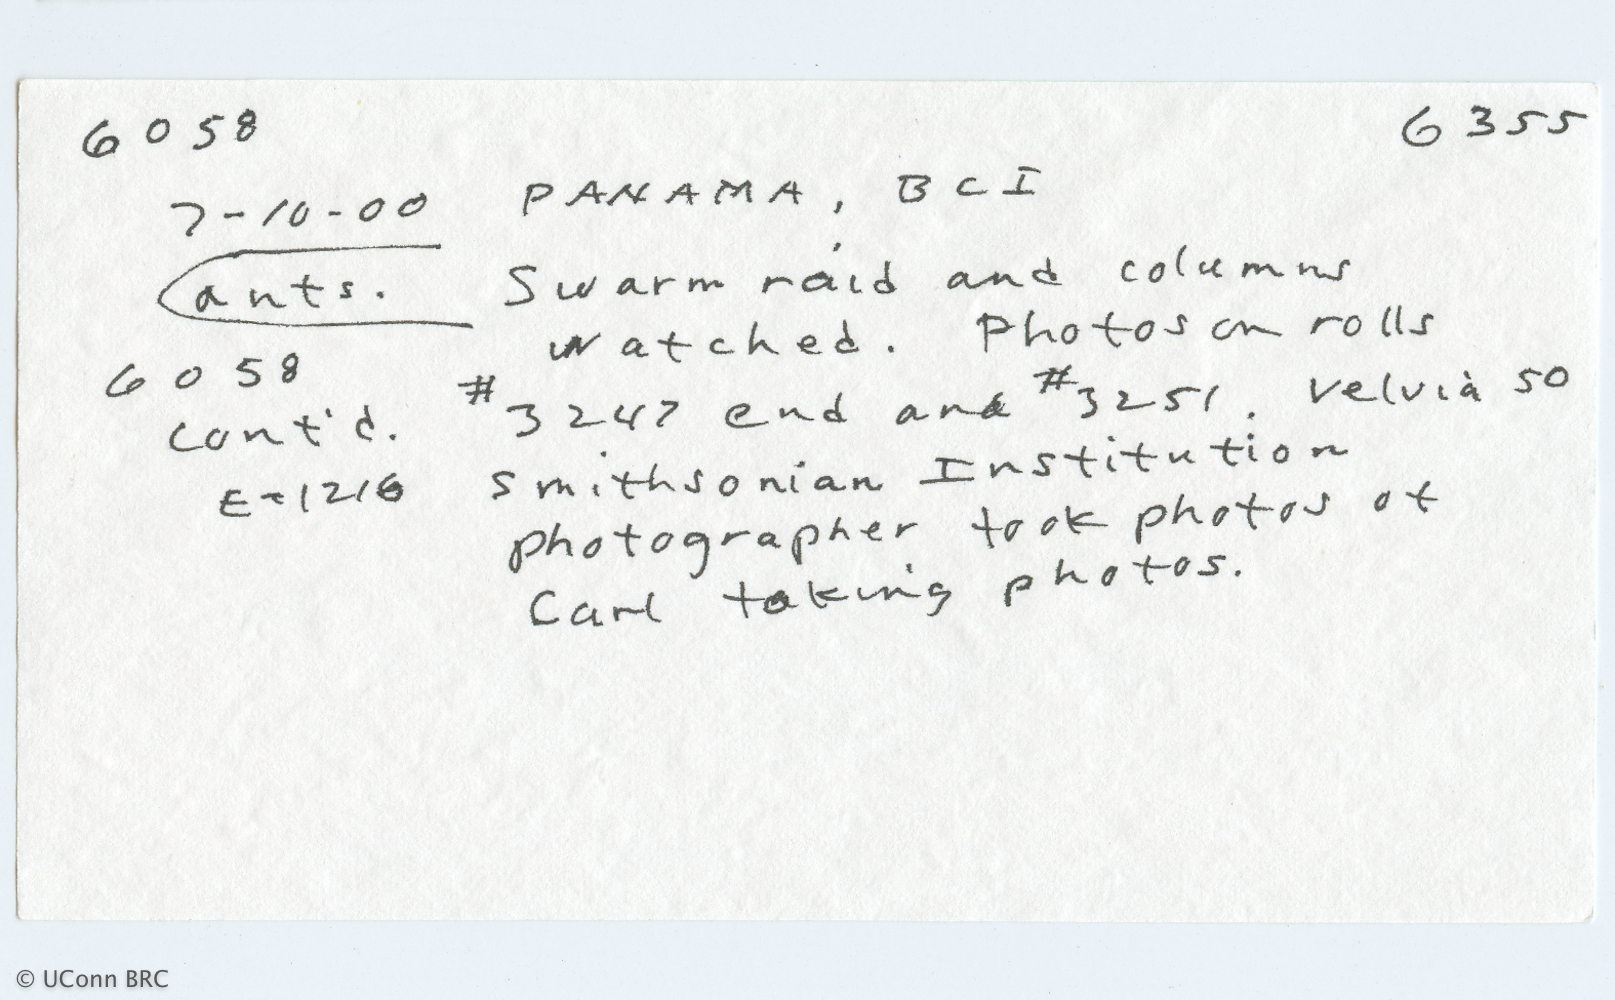 6058 6355
7-10-00 PANAMA, BCI
ants. Swarm raid and columns
watched. Photos on rolls
6058 #3247 end and #3251. Velvia 50
cont'd.
E-1216 Smithsonian Institution
photographer took photos of
Carl taking photos.
© UConn BRC